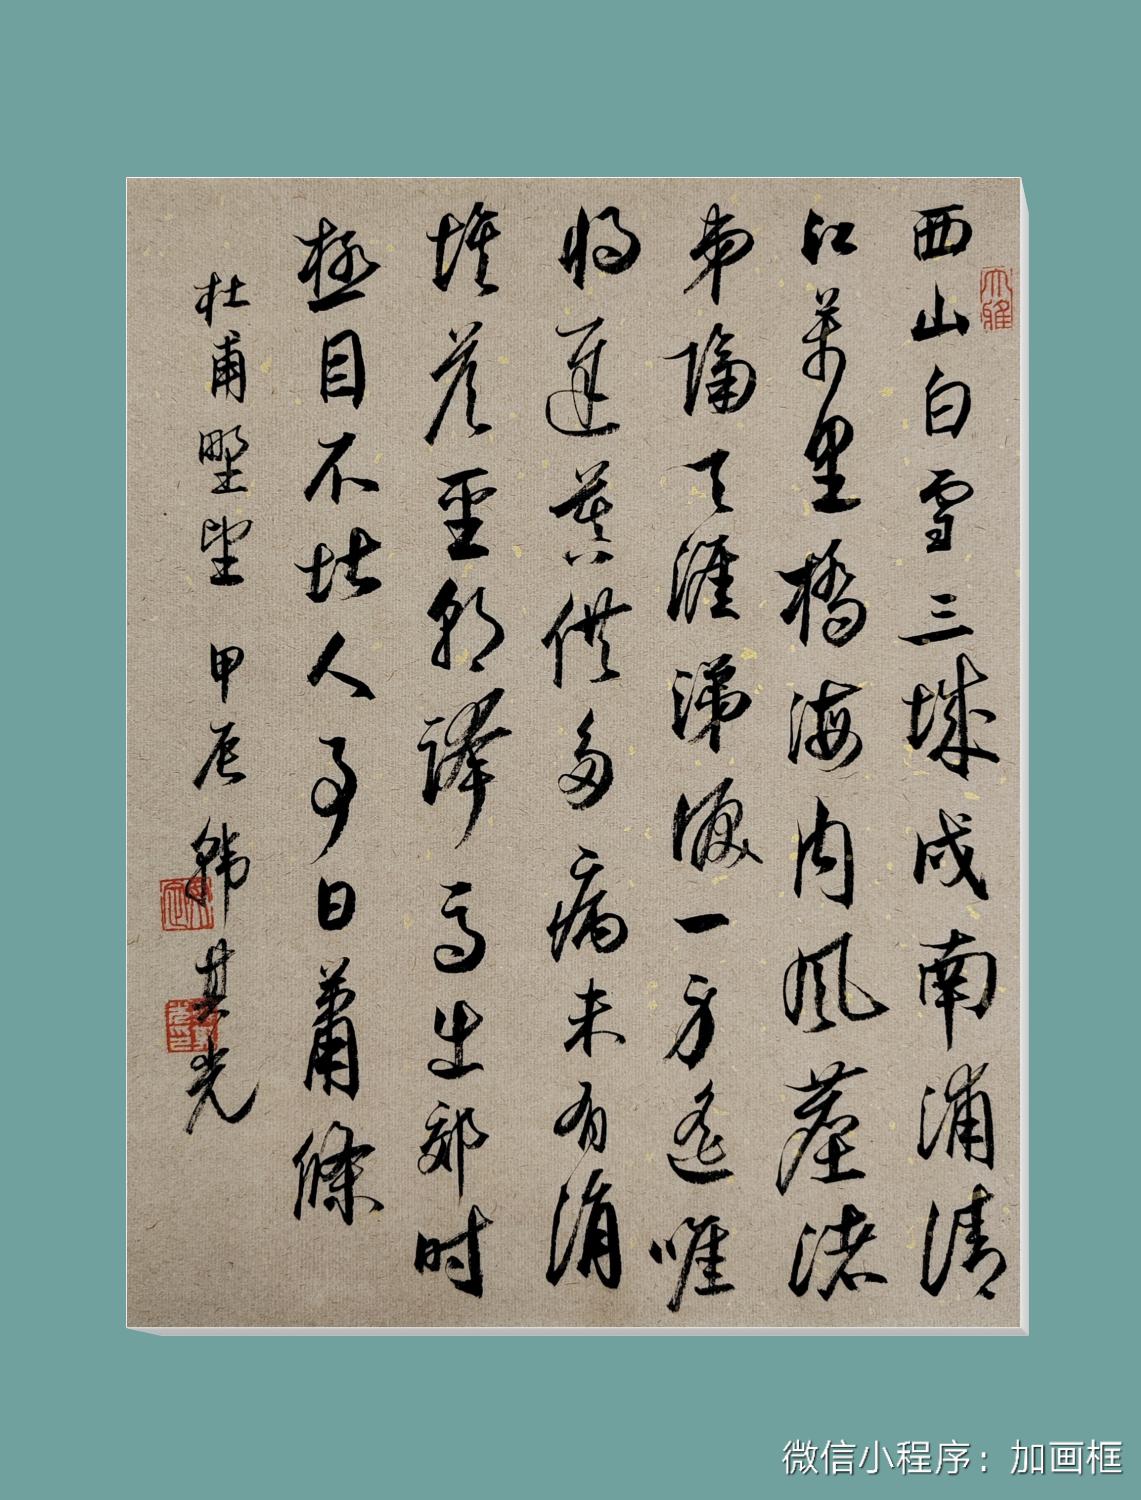 西山白雪三城戍南浦清
江萬里橋海内風塵诸
弟隔天涯涕淚一身遥唯
將遲暮供多病未有涓
埃答聖朝跨馬出郊时
極目不堪人事日蕭條
杜甫野望 甲辰 韩其光
大雅
微信小程序：加画框